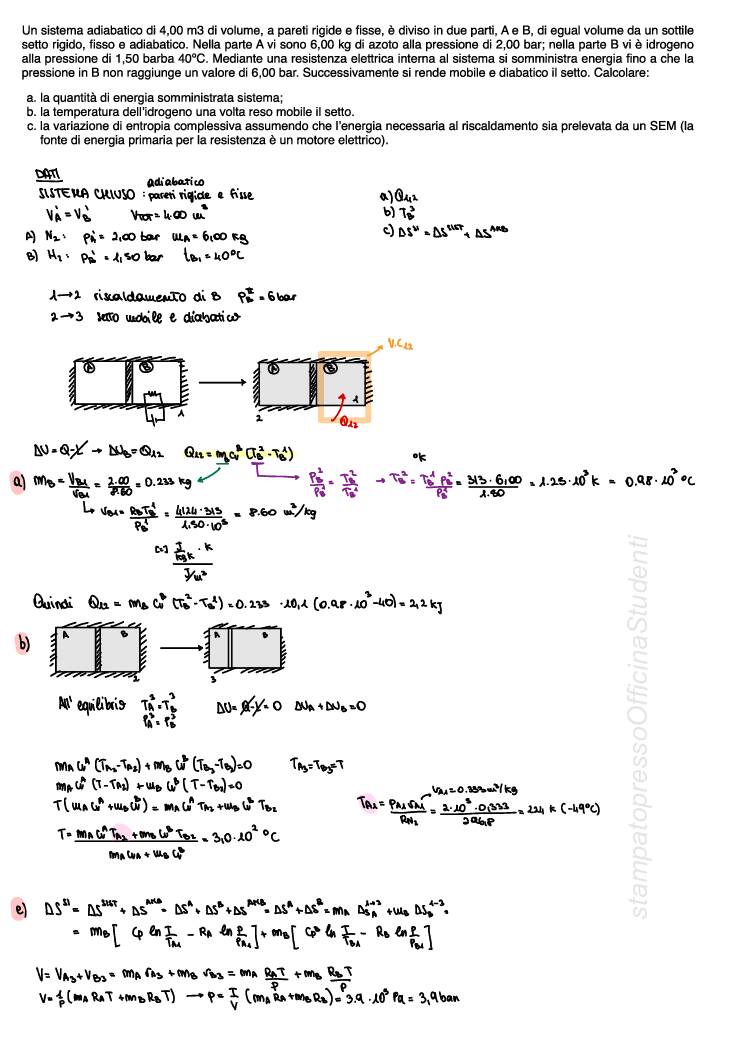 Un sistema adiabatico di 4,00 m3 di volume, a pareti rigide e fisse, è diviso in due parti, A e B, di egual volume da un sottile
setto rigido, fisso e adiabatico. Nella parte A vi sono 6,00 kg di azoto alla pressione di 2,00 bar; nella parte B vi è idrogeno
alla pressione di 1,50 barba 40°C. Mediante una resistenza elettrica interna al sistema si somministra energia fino a che la
pressione in B non raggiunge un valore di 6,00 bar. Successivamente si rende mobile e diabatico il setto. Calcolare:
a. la quantità di energia somministrata sistema;
b. la temperatura dell'idrogeno una volta reso mobile il setto.
c. la variazione di entropia complessiva assumendo che l'energia necessaria al riscaldamento sia prelevata da un SEM (la
fonte di energia primaria per la resistenza è un motore elettrico).
DATI
SISTEMA CHIUSO : adiabatico pareti rigide e fisse
V_A^1 = V_B^1 V_TOT = 4.00 m^3
A) N2 : P_A^1 = 2,00 bar m_A = 6,00 kg
B) H2 : P_B^1 = 1,50 bar t_B1 = 40°C
a) Q12
b) T_B^3
c) ΔS^SI = ΔS^SIST + ΔS^AMB
1→2 riscaldamento di B P_B^II = 6 bar
2→3 setto mobile e diabatico
A B 1
A B 1 2
V.C12
Q12
ΔU = Q-L → ΔU_B = Q12 Q12 = m_B c_v^B (T_B^2 - T_B^1)
a) m_B = V_B1/v_B1 = 2.00/8.60 = 0.233 kg
P_B^2/P_B^1 = T_B^2/T_B^1 → T_B^2 = T_B^1 P_B^2/P_B^1 = 313 · 6,00/1.50 = 1.25 · 10^3 K = 0.98 · 10^3 °C
°K
↳ v_B1 = R_B T_B^1/P_B^1 = 4124 · 313/1,50 · 10^5 = 8.60 m^3/kg
[=] J/kgK · K / J/m^3
Quindi Q12 = m_B c_v^B (T_B^2 - T_B^1) = 0.233 · 10,1 (0.98 · 10^3 - 40) = 2,2 kJ
b)
A B 2
A B 3
All' equilibrio T_A^3 = T_B^3
P_A^3 = P_B^3
ΔU = Q-L = 0 ΔU_A + ΔU_B = 0
m_A c_v^A (T_A3 - T_A2) + m_B c_v^B (T_B3 - T_B2) = 0 T_A3 = T_B3 = T
m_A c_v^A (T - T_A2) + m_B c_v^B (T - T_B2) = 0
T (m_A c_v^A + m_B c_v^B) = m_A c_v^A T_A2 + m_B c_v^B T_B2
v_A1 = 0.333 m^3/kg
T_A1 = P_A1 v_A1/R_N2 = 2 · 10^5 · 0,333/296,8 = 224 K (-49°C)
T = m_A c_v^A T_A2 + m_B c_v^B T_B2 / m_A c_vA + m_B c_v^B = 3,0 · 10^2 °C
c) ΔS^SI = ΔS^SIST + ΔS^AMB = ΔS^A + ΔS^B + ΔS^AMB = ΔS^A + ΔS^B = m_A Δs_A^1→3 + m_B Δs_B^1→3 =
= m_B [ c_p ln T/T_A1 - R_A ln P/P_A1 ] + m_B [ c_p^B ln T/T_B1 - R_B ln P/P_B1 ]
V = V_A3 + V_B3 = m_A v_A3 + m_B v_B3 = m_A R_A T/P + m_B R_B T/P
V = 1/P (m_A R_A T + m_B R_B T) → P = T/V (m_A R_A + m_B R_B) = 3.9 · 10^5 Pa = 3,9 bar
stampatopressoOfficinaStudenti